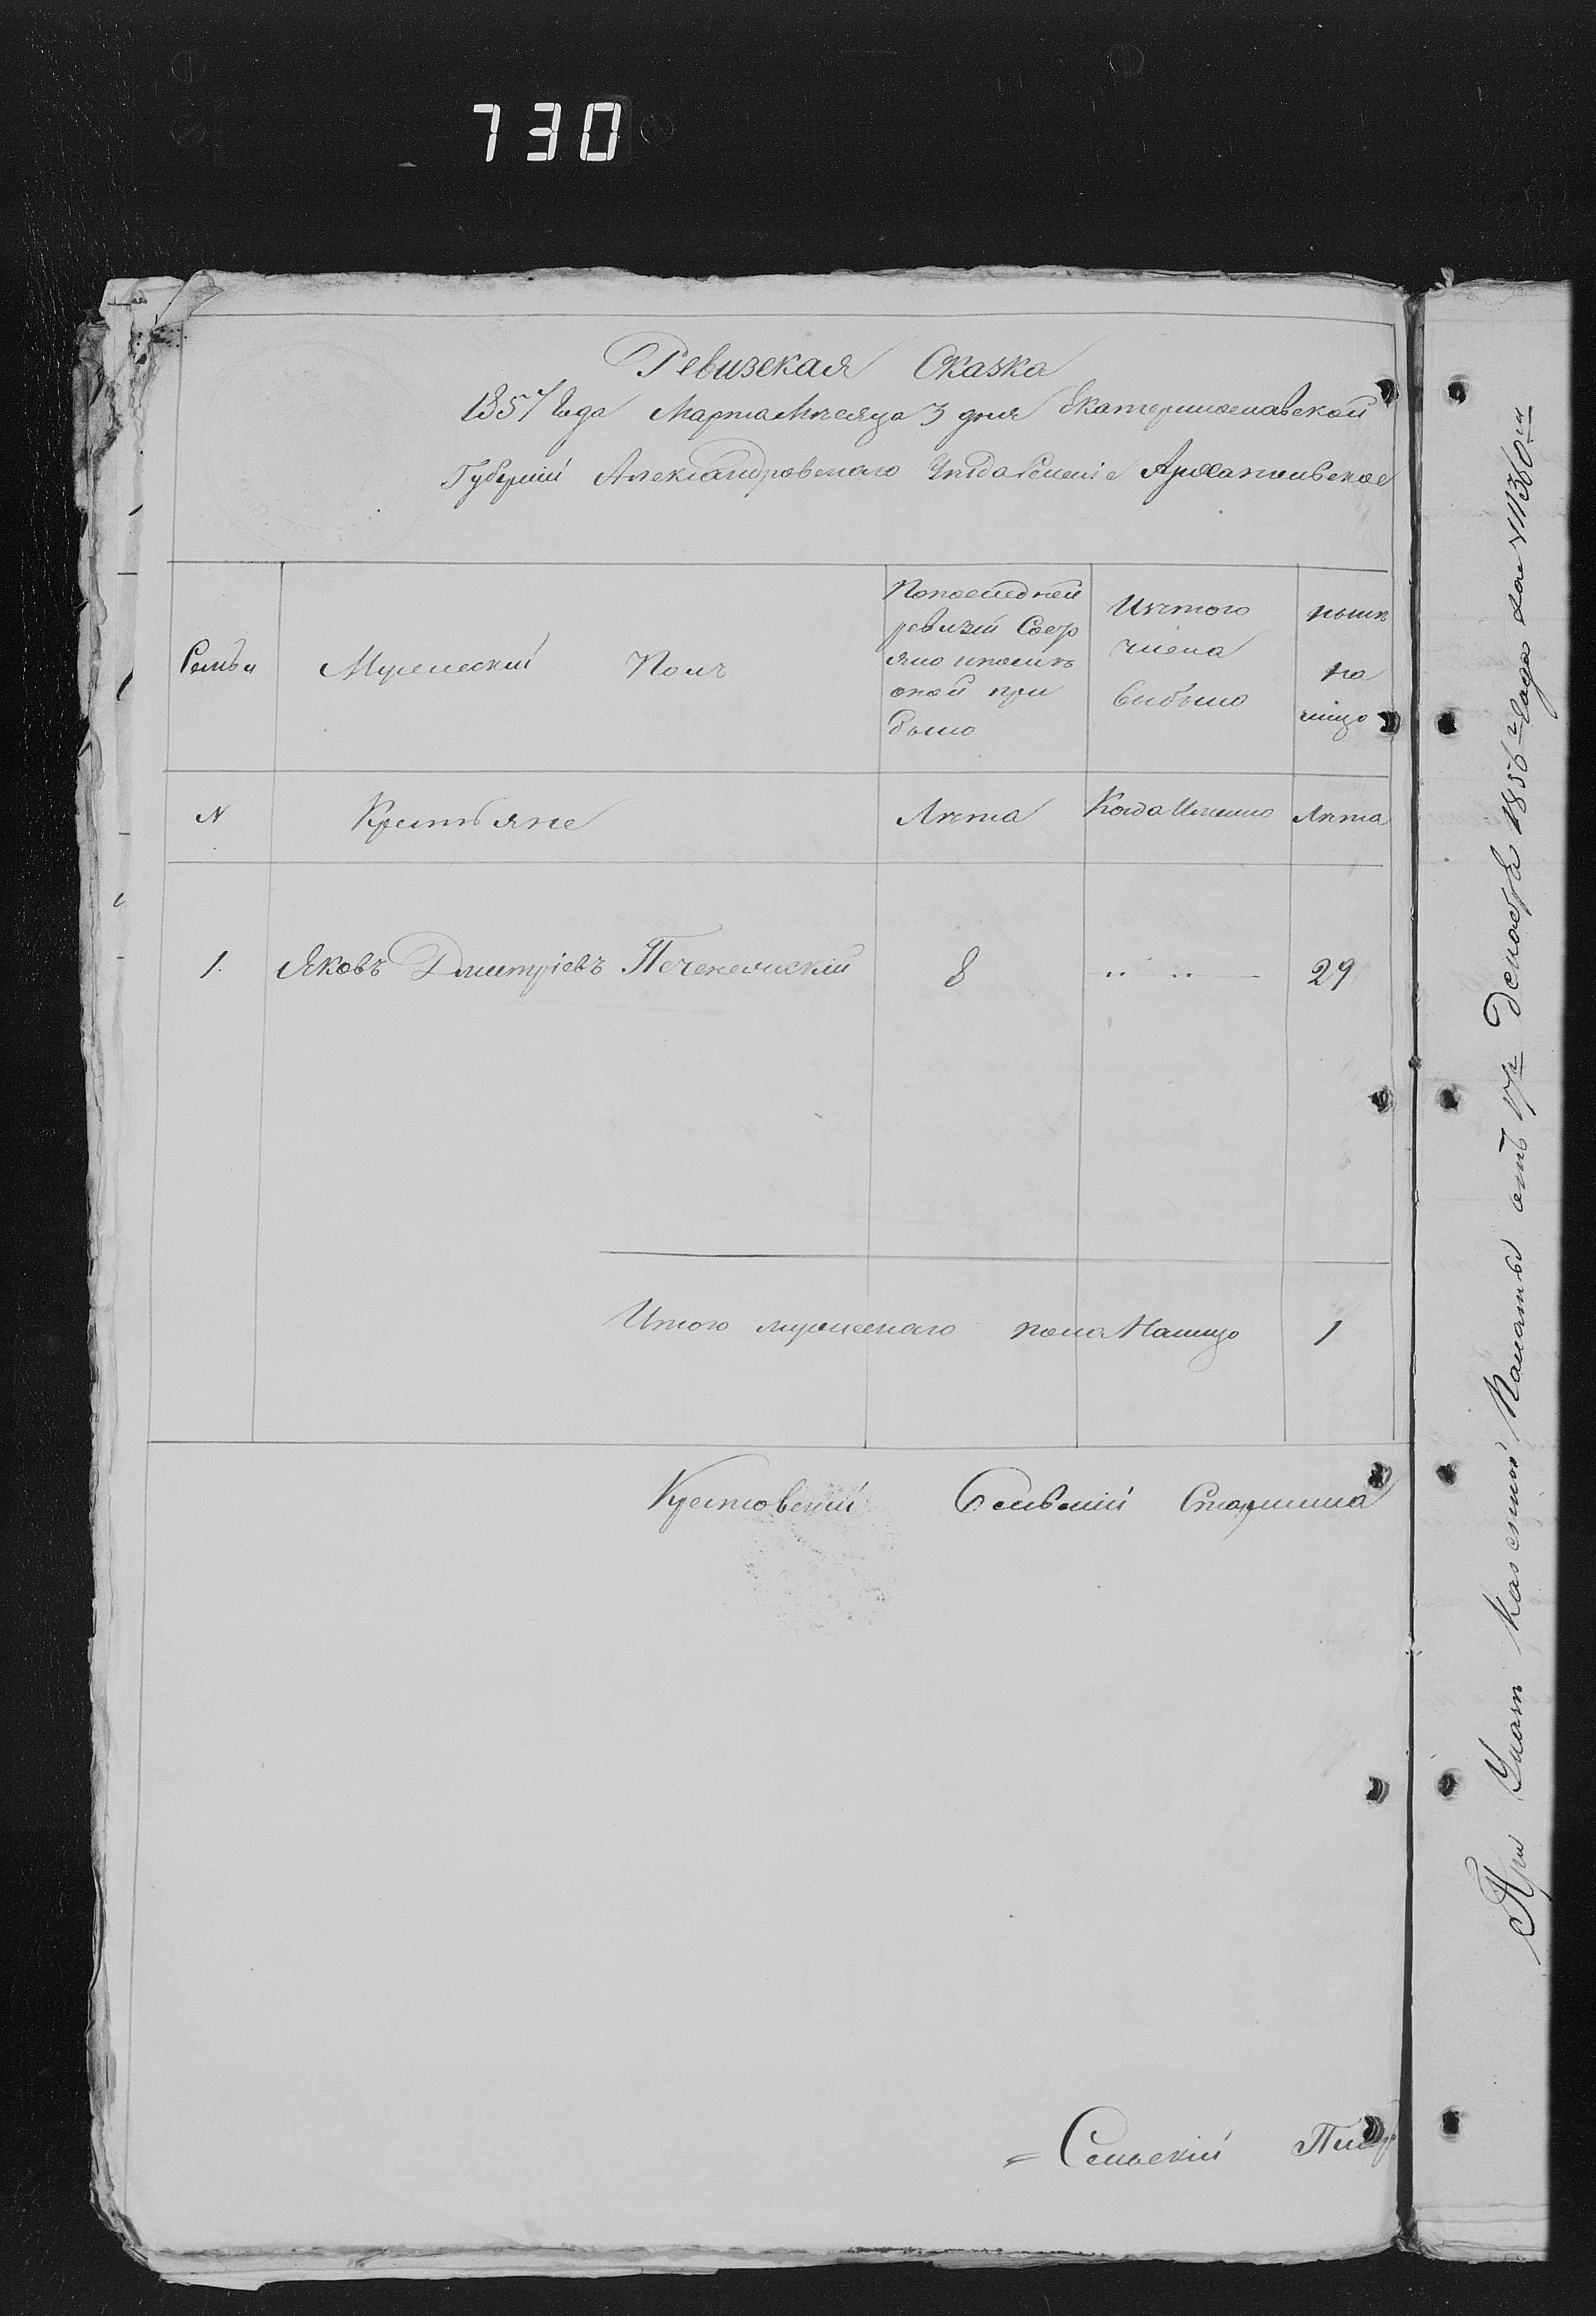 730
Ревизская Сказка
1857 Года Марта Месяца 3 дня Екатеринославской
Губерніи Александровскаго Уезда Селеніе Архангельское
Семьи
Мужескій Полъ
Попоследней
ревизіи Сост
яло ипослѣ
оной при
было
Изтого
числа
выбыло
ныне
на
лицо
N
Крестьяне
Лѣта
Когда Имянно
Лѣта
1.
Яковъ Дмитріевъ
8
29
Итого мужескаго пола Налицо
1
Сельскій Старшина
Сельскій
При Указѣ Казенной Палаты отъ Декабря 1856 года за